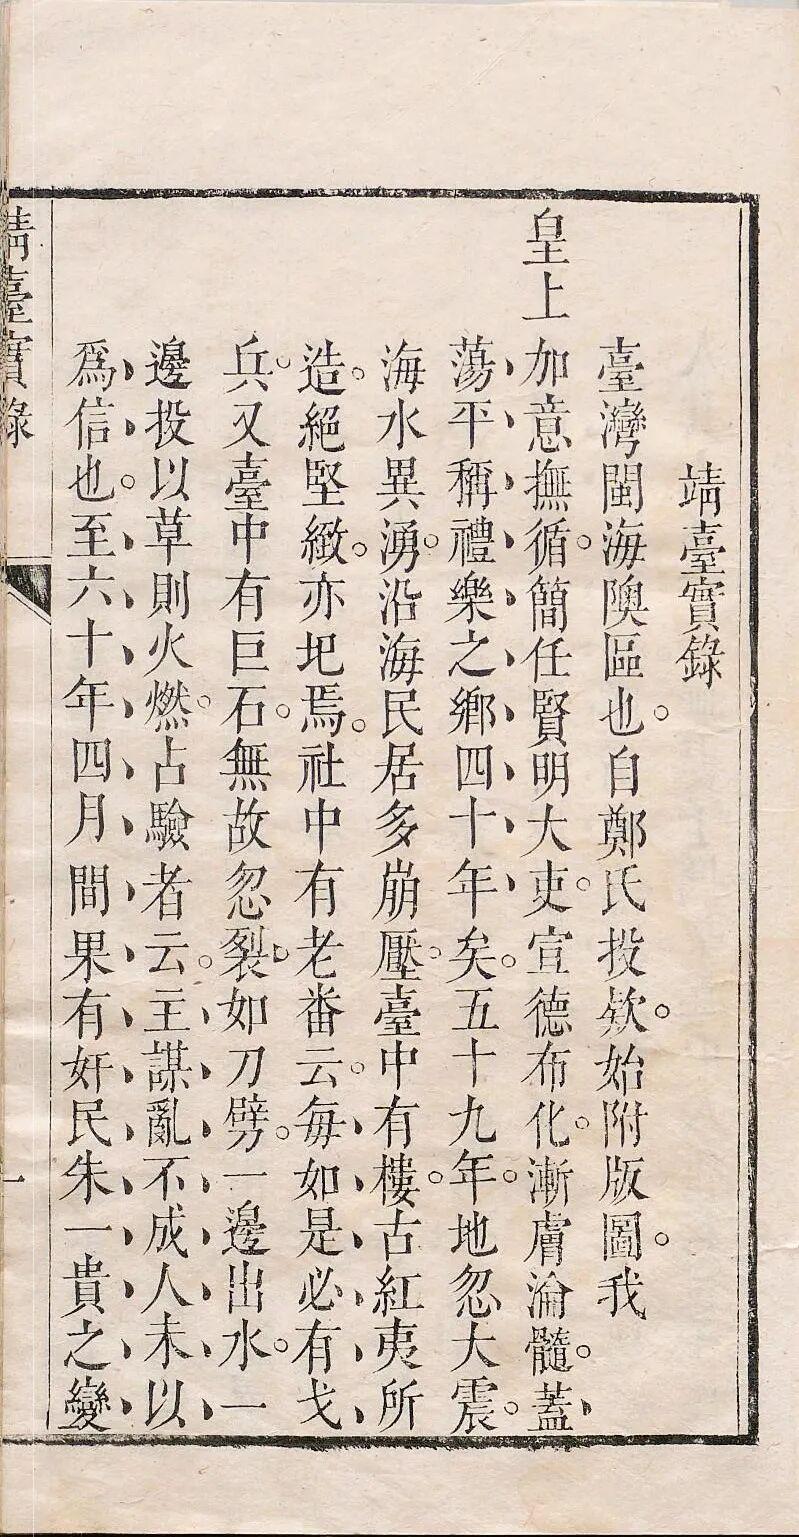 靖臺實錄
臺灣閩海隩區也。自鄭氏投欵。始附版圖。我
皇上加意撫循。簡任賢明大吏。宣德布化。漸膚淪髓。葢
蕩平稱禮樂之鄉四十年矣。五十九年。地忽大震。
海水異湧。沿海民居多崩壓。臺中有樓。古紅夷所
造。絕堅緻。亦圯焉。社中有老番云。每如是必有戈
兵。又臺中有巨石。無故忽裂。如刀劈。一邊出水。一
邊投以草則火燃。占驗者云。主謀亂不成人未以
爲信也。至六十年四月間果有奸民朱一貴之變
靖臺實錄
一